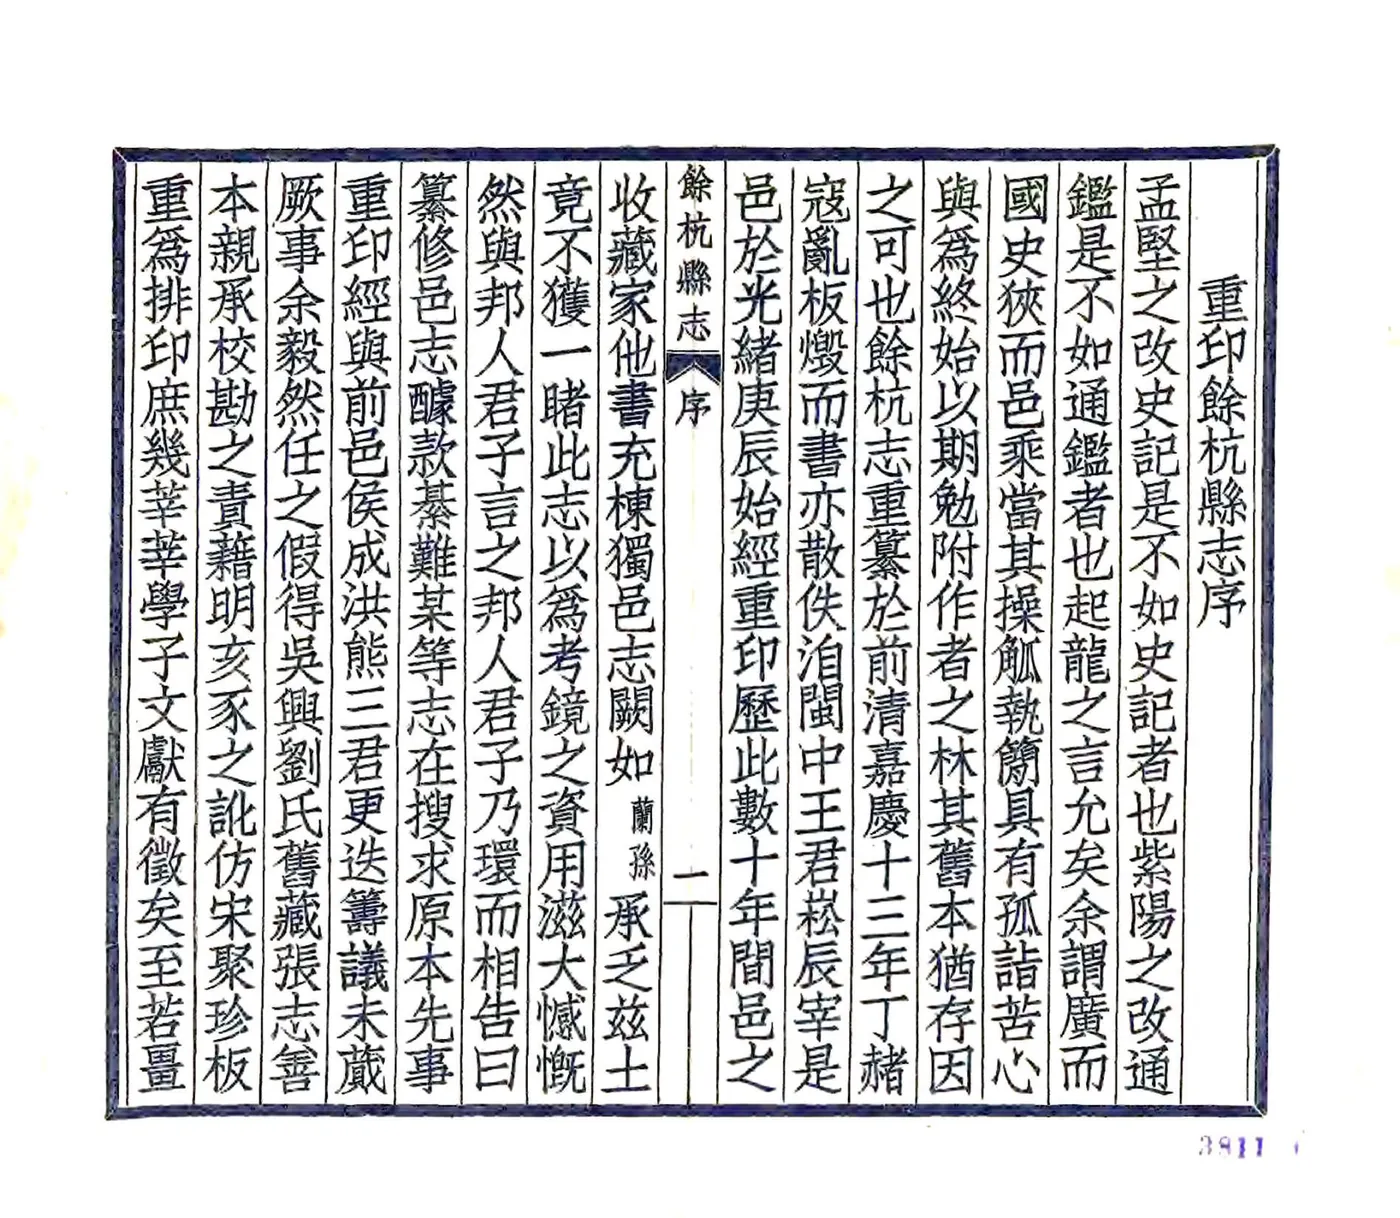 重印餘杭縣志序
孟堅之改史記是不如史記者也紫陽之改通
鑑是不如通鑑者也起龍之言允矣余謂廣而
國史狹而邑乘當其操觚執簡具有孤詣苦心
與為終始以期勉附作者之林其舊本猶存因
之可也餘杭志重纂於前清嘉慶十三年丁赭
寇亂板燬而書亦散佚洎閩中王君崧辰宰是
邑於光緒庚辰始經重印歷此數十年間邑之
餘杭縣志 序 一
收藏家他書充棟獨邑志闕如蘭孫承乏茲土
竟不獲一睹此志以為考鏡之資用滋大憾慨
然與邦人君子言之邦人君子乃環而相告曰
纂修邑志醵款綦難某等志在搜求原本先事
重印經與前邑侯成洪熊三君更迭籌議未蕆
厥事余毅然任之假得吳興劉氏舊藏張志善
本親承校勘之責藉明亥豕之訛仿宋聚珍板
重為排印庶幾莘莘學子文獻有徵矣至若畺
3811